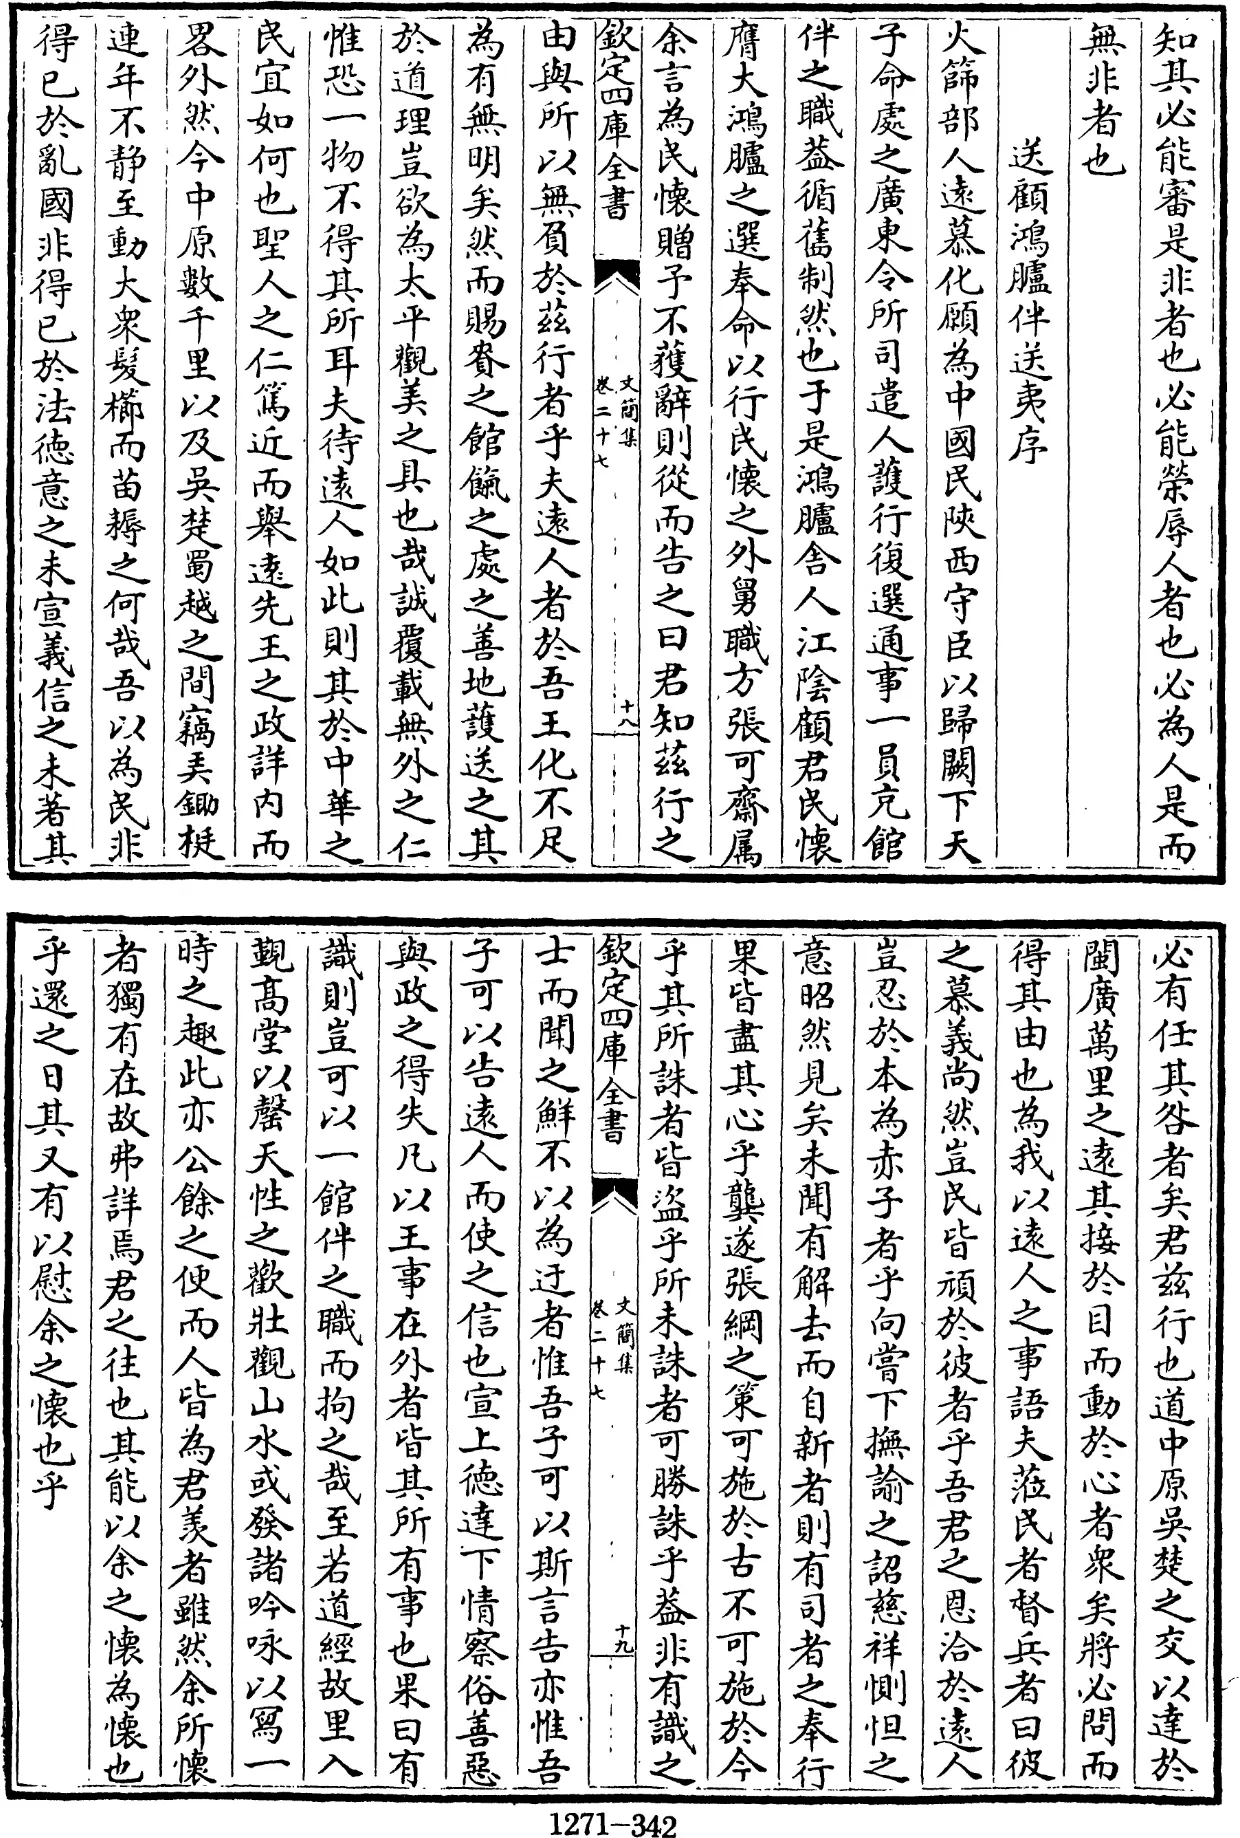 知其必能審是非者也必能榮辱人者也必為人是而
無非者也
送顧鴻臚伴送夷序
火篩部人遠慕化願為中國民陜西守臣以歸闕下天
子命處之廣東令所司遣人護行復選通事一員充館
伴之職葢循舊制然也于是鴻臚舍人江陰顧君民懷
膺大鴻臚之選奉命以行民懷之外舅職方張可齋属
余言為民懷贈予不獲辭則從而告之曰君知茲行之
欽定四庫全書
文簡集
卷二十七
十八
由與所以無負於茲行者乎夫遠人者於吾王化不足
為有無明矣然而賜賚之館餼之處之善地護送之其
於道理豈欲為太平觀美之具也哉誠覆載無外之仁
惟恐一物不得其所耳夫待遠人如此則其於中華之
民宜如何也聖人之仁篤近而舉遠先王之政詳内而
畧外然今中原數千里以及吳楚蜀越之間竊弄鋤梃
連年不静至動大衆髮櫛而苗耨之何哉吾以為民非
得已於亂國非得已於法德意之未宣義信之未著其
必有任其咎者矣君茲行也道中原吳楚之交以達於
閩廣萬里之遠其接於目而動於心者衆矣將必問而
得其由也為我以遠人之事語夫蒞民者督兵者曰彼
之慕義尚然豈民皆頑於彼者乎吾君之恩洽於遠人
豈忍於本為赤子者乎向嘗下撫諭之詔慈祥惻怛之
意昭然見矣未聞有解去而自新者則有司者之奉行
果皆盡其心乎龔遂張綱之策可施於古不可施於今
乎其所誅者皆盜乎所未誅者可勝誅乎葢非有識之
欽定四庫全書
文簡集
卷二十七
十九
士而聞之鮮不以為迂者惟吾子可以斯言告亦惟吾
子可以告遠人而使之信也宣上德達下情察俗善惡
與政之得失凡以王事在外者皆其所有事也果曰有
識則豈可以一館伴之職而拘之哉至若道經故里入
覲高堂以罄天性之歡壯觀山水或發諸吟咏以寫一
時之趣此亦公餘之便而人皆為君羡者雖然余所懷
者獨有在故弗詳焉君之往也其能以余之懷為懷也
乎還之日其又有以慰余之懷也乎
1271-342